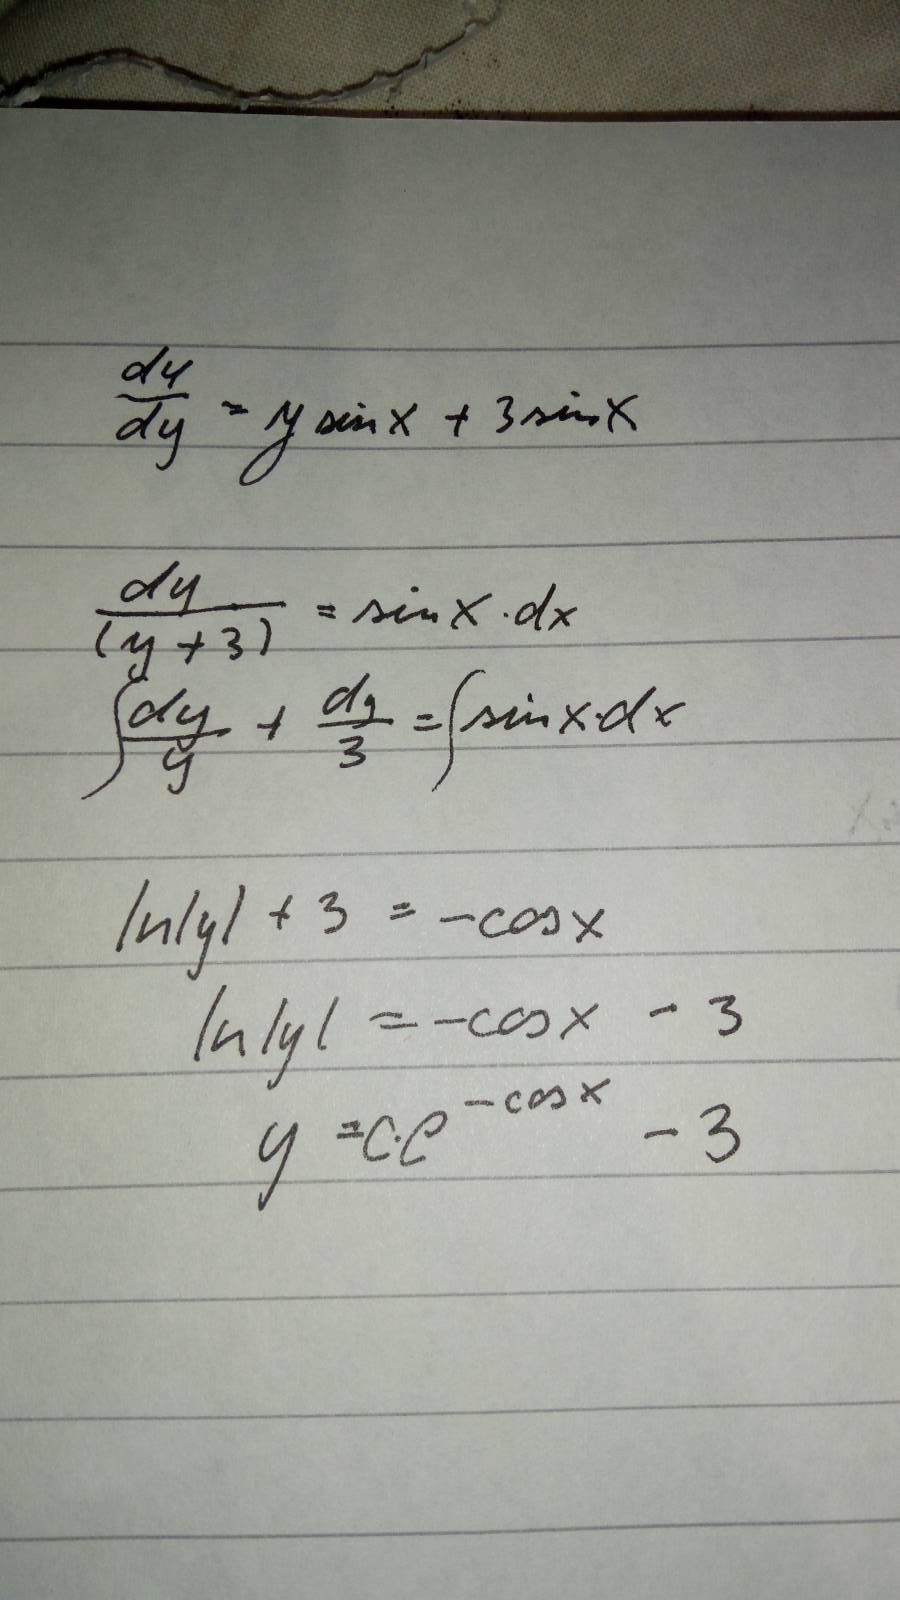 dy/dy = y sinx + 3 sinx
dy/(y + 3) = sinx · dx
∫ dy/y + dy/3 = ∫ sinx · dx
ln|y| + 3 = -cosx
ln|y| = -cosx - 3
y = c·e^-cosx - 3